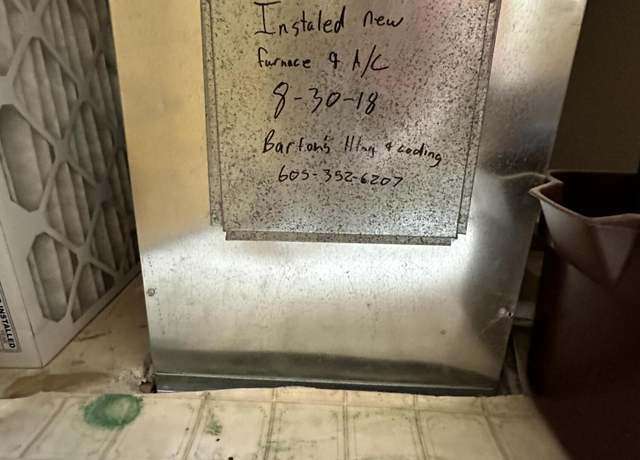 Instaled new
furnace & A/C
8-30-18
Barton's Htng & cooling
605-352-6207
INSTALLED